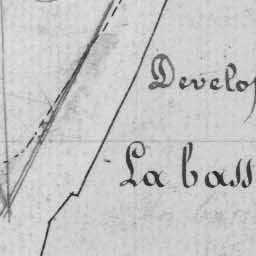 Develop
La bass